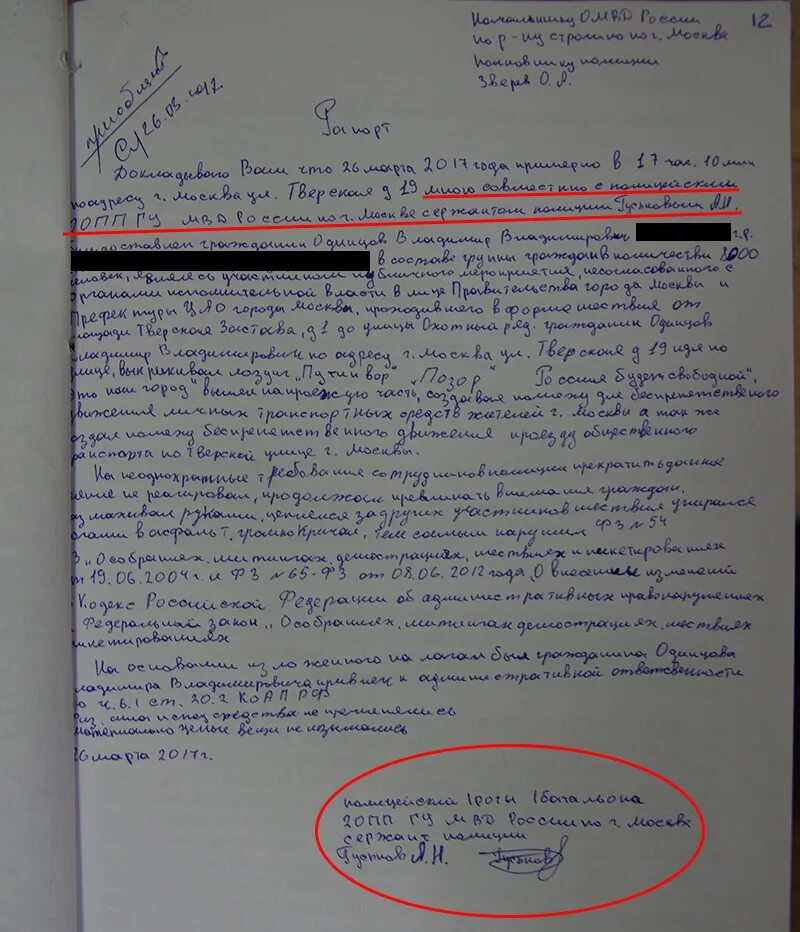 12
Начальнику ОМВД России
по р-ну строгино по г. Москве
полковнику полиции
Зверев О. А.
приобщить
26.03.2017.
Рапорт
Докладываю Вам что 26 марта 2017 года примерно в 17 час. 10 мин
по адресу г. Москва ул. Тверская д 19 мною совместно с полицейским
2ОПП ГУ МВД России по г. Москве сержантом полиции Гуськовым А.Н.
был доставлен гражданин Одинцов Владимир Владимирович г.р.
в составе группы граждан в количестве 8000
человек, являясь участником публичного мероприятия, несогласованного с
органами исполнительной власти в лице Правительства города Москвы и
Префектуры ЦАО города Москвы, проходившего в форме шествия от
площади Тверская Застава, д 1 до улицы Охотный ряд. гражданин Одинцов
Владимир Владимирович по адресу г. Москва ул. Тверская д 19 идя по
улице, выкрикивал лозунг „Путин вор" „Позор" „Россия будет свободной",
это наш город" вышел на проезжую часть, создавая помеху для беспрепетственого
движения личных транспортных средств жителей г. Москвы а так же
создал помеху беспрепетственного движения проезду общественного
транспорта по Тверской улице г. Москвы.
На неоднократные требования сотрудников полиции прекратить данное
не реагировал, продолжал превликать внимания граждан,
размахивал руками, цеплялся за других участников шествия упирался
ногами в асфальт, громко кричал, тем самым нарушил ФЗ №54
ФЗ „О собраниях, митингах, демострациях, шествиях и пикетированиях
от 19.06.2004 г. и ФЗ №65-ФЗ от 08.06.2012 года „О внесении изменений
Кодекс Российской Федерации об административных правонарушениях
Федеральный закон „О собраниях, митингах демострациях, шествиях
пикетированиях
На основании изложенного полагал бы гражданина Одинцова
Владимира Владимировича привлеч к административной ответственности
по ч. 6.1 ст. 20.2 КоАП РФ
Физ. сила и спец средства не применялись
материально ценые вещи не изымались
26 марта 2017г.
полицейский 1 роты 1 батальона
2ОПП ГУ МВД России по г. Москве
сержант полиции
Гуськов А.Н. Гуськов